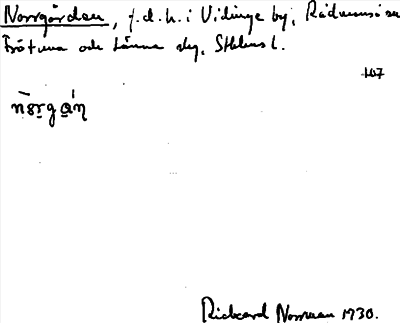 Norrgården, f.d. h. i Vidinge by, Rådmansö sn
Frötuna och Länna slg. Sthlms l.
107
Rickard Norrman 1930.